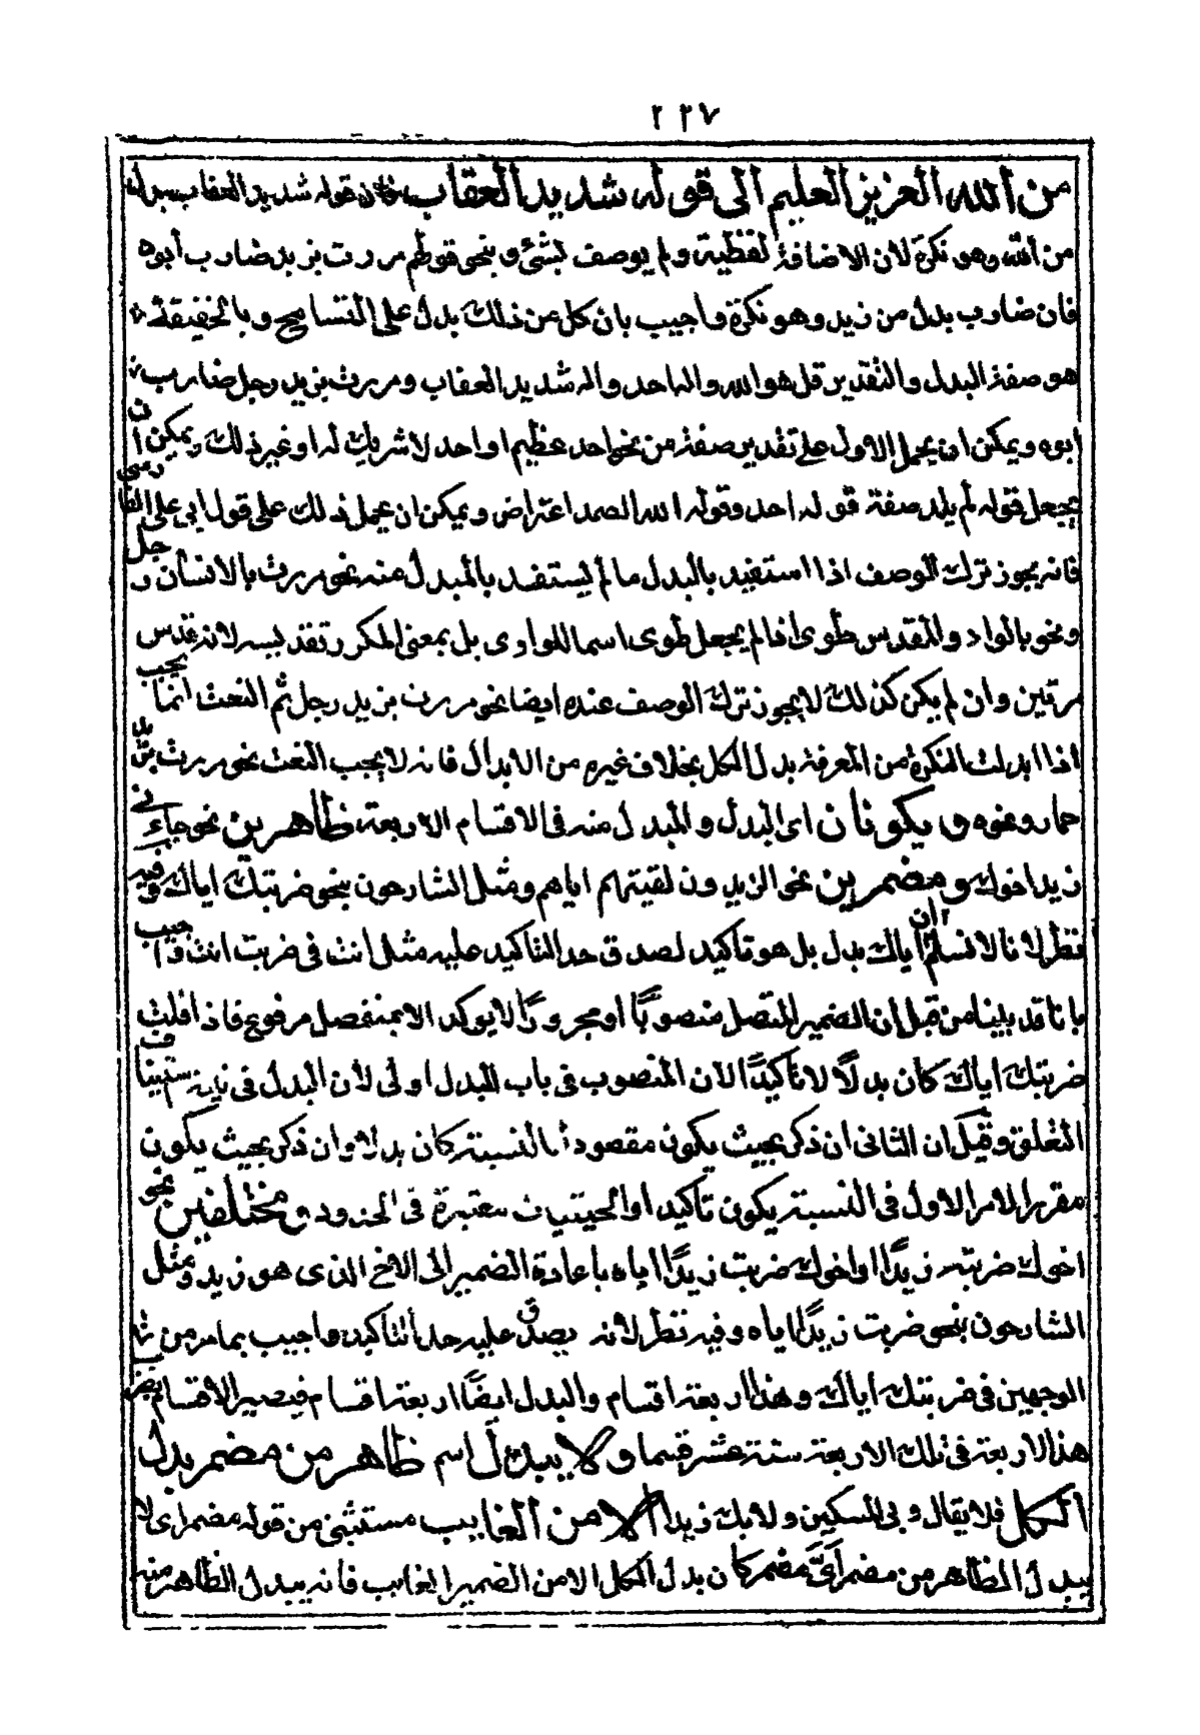 ٢٢٧
من الله العزيز العليم الى قوله شديد العقاب فان قوله شديد العقاب بدل
من الله وهو نكرة لان الاضافة لفظية ولم يوصف بشئ و بنحو قولهم مررت بزيد ضارب أبوه
فان ضارب بدل من زيد وهو نكرة واجيب بان كل من ذلك بدل على التسامح و بالحقيقة
هو صفة البدل والتقدير قل هو الله واله احد واله شديد العقاب ومررت بزيد رجل ضارب
ابوه ويمكن ان يحمل الاول على تقدير صفة من نحو احد عظيم او احد لا شريك له او غير ذلك ويمكن ان
يجعل قوله لم يلد صفة قوله احد وقوله الله الصمد اعتراض ويمكن ان يحمل ذلك على قول ابي على الفارسى
فانه يجوز ترك الوصف اذا استفيد بالبدل ما لم يستفد بالمبدل منه نحو مررت بالانسان رجل
ونحو بالواد المقدس طوى اذا لم يجعل طوى اسما للوادى بل بمعنى المكرر تقديسه لانه قدس
مرتين وان لم يكن كذلك لا يجوز ترك الوصف عنده ايضا نحو مررت بزيد رجل ثم النعت انما يجب
اذا ابدلت النكرة من المعرفة بدل الكل بخلاف غيره من الابدال فانه لا يجب النعت نحو مررت بزيد
حمار ونحوه و يكونان اى البدل والمبدل منه فى الاقسام الاربعة ظاهرين نحو جاءنى
زيد اخوك ومضمرين نحو الزيدون لقيتهم اياهم ومثل الشارحون بنحو ضربتك اياك وفيه
نظر لانا لا نسلم ان اياك بدل بل هو تأكيد لصدق حد التأكيد عليه مثل انت فى ضربت انت واجيب
بانا قد بينا من قبل ان الضمير المتصل منصوبًا او مجرورًا لا يوكد الا بمنفصل مرفوع فاذا قلت
ضربتك اياك كان بدلًا لا تأكيدًا لان المنصوب فى باب البدل اولى لأن البدل فى
التعلق وقيل ان الثانى ان ذكر بحيث يكون مقصودا بالنسبة كان بدلا وان ذكر بحيث يكون
مقررا لامر الاول فى النسبة يكون تأكيدا والحيثيات معتبرة فى الحدود و مختلفين نحو
اخوك ضربته زيدًا او اخوك ضربت زيدًا اياه باعادة الضمير الى الاخ الذى هو زيد ومثل
الشارحون بنحو ضربت زيدًا اياه وفيه نظر لانه يصدق عليه حد التأكيد واجيب بما مر من
الوجهين فى ضربتك اياك وهذا اربعة اقسام والبدل ايضًا اربعة اقسام فيصير الاقسام بضرب
هذا الاربعة فى تلك الاربعة ستة عشر قسما و لا يبدل اسم ظاهر من مضمر بدل
الكل فلا يقال وبى المسكين ولا بك زيد الا من الغايب مستثنى من قوله مضمر اى لا
يبدل الظاهر من مضمر اىَّ مضمر كان بدل الكل الا من الضمير الغايب فانه يبدل الظاهر منه